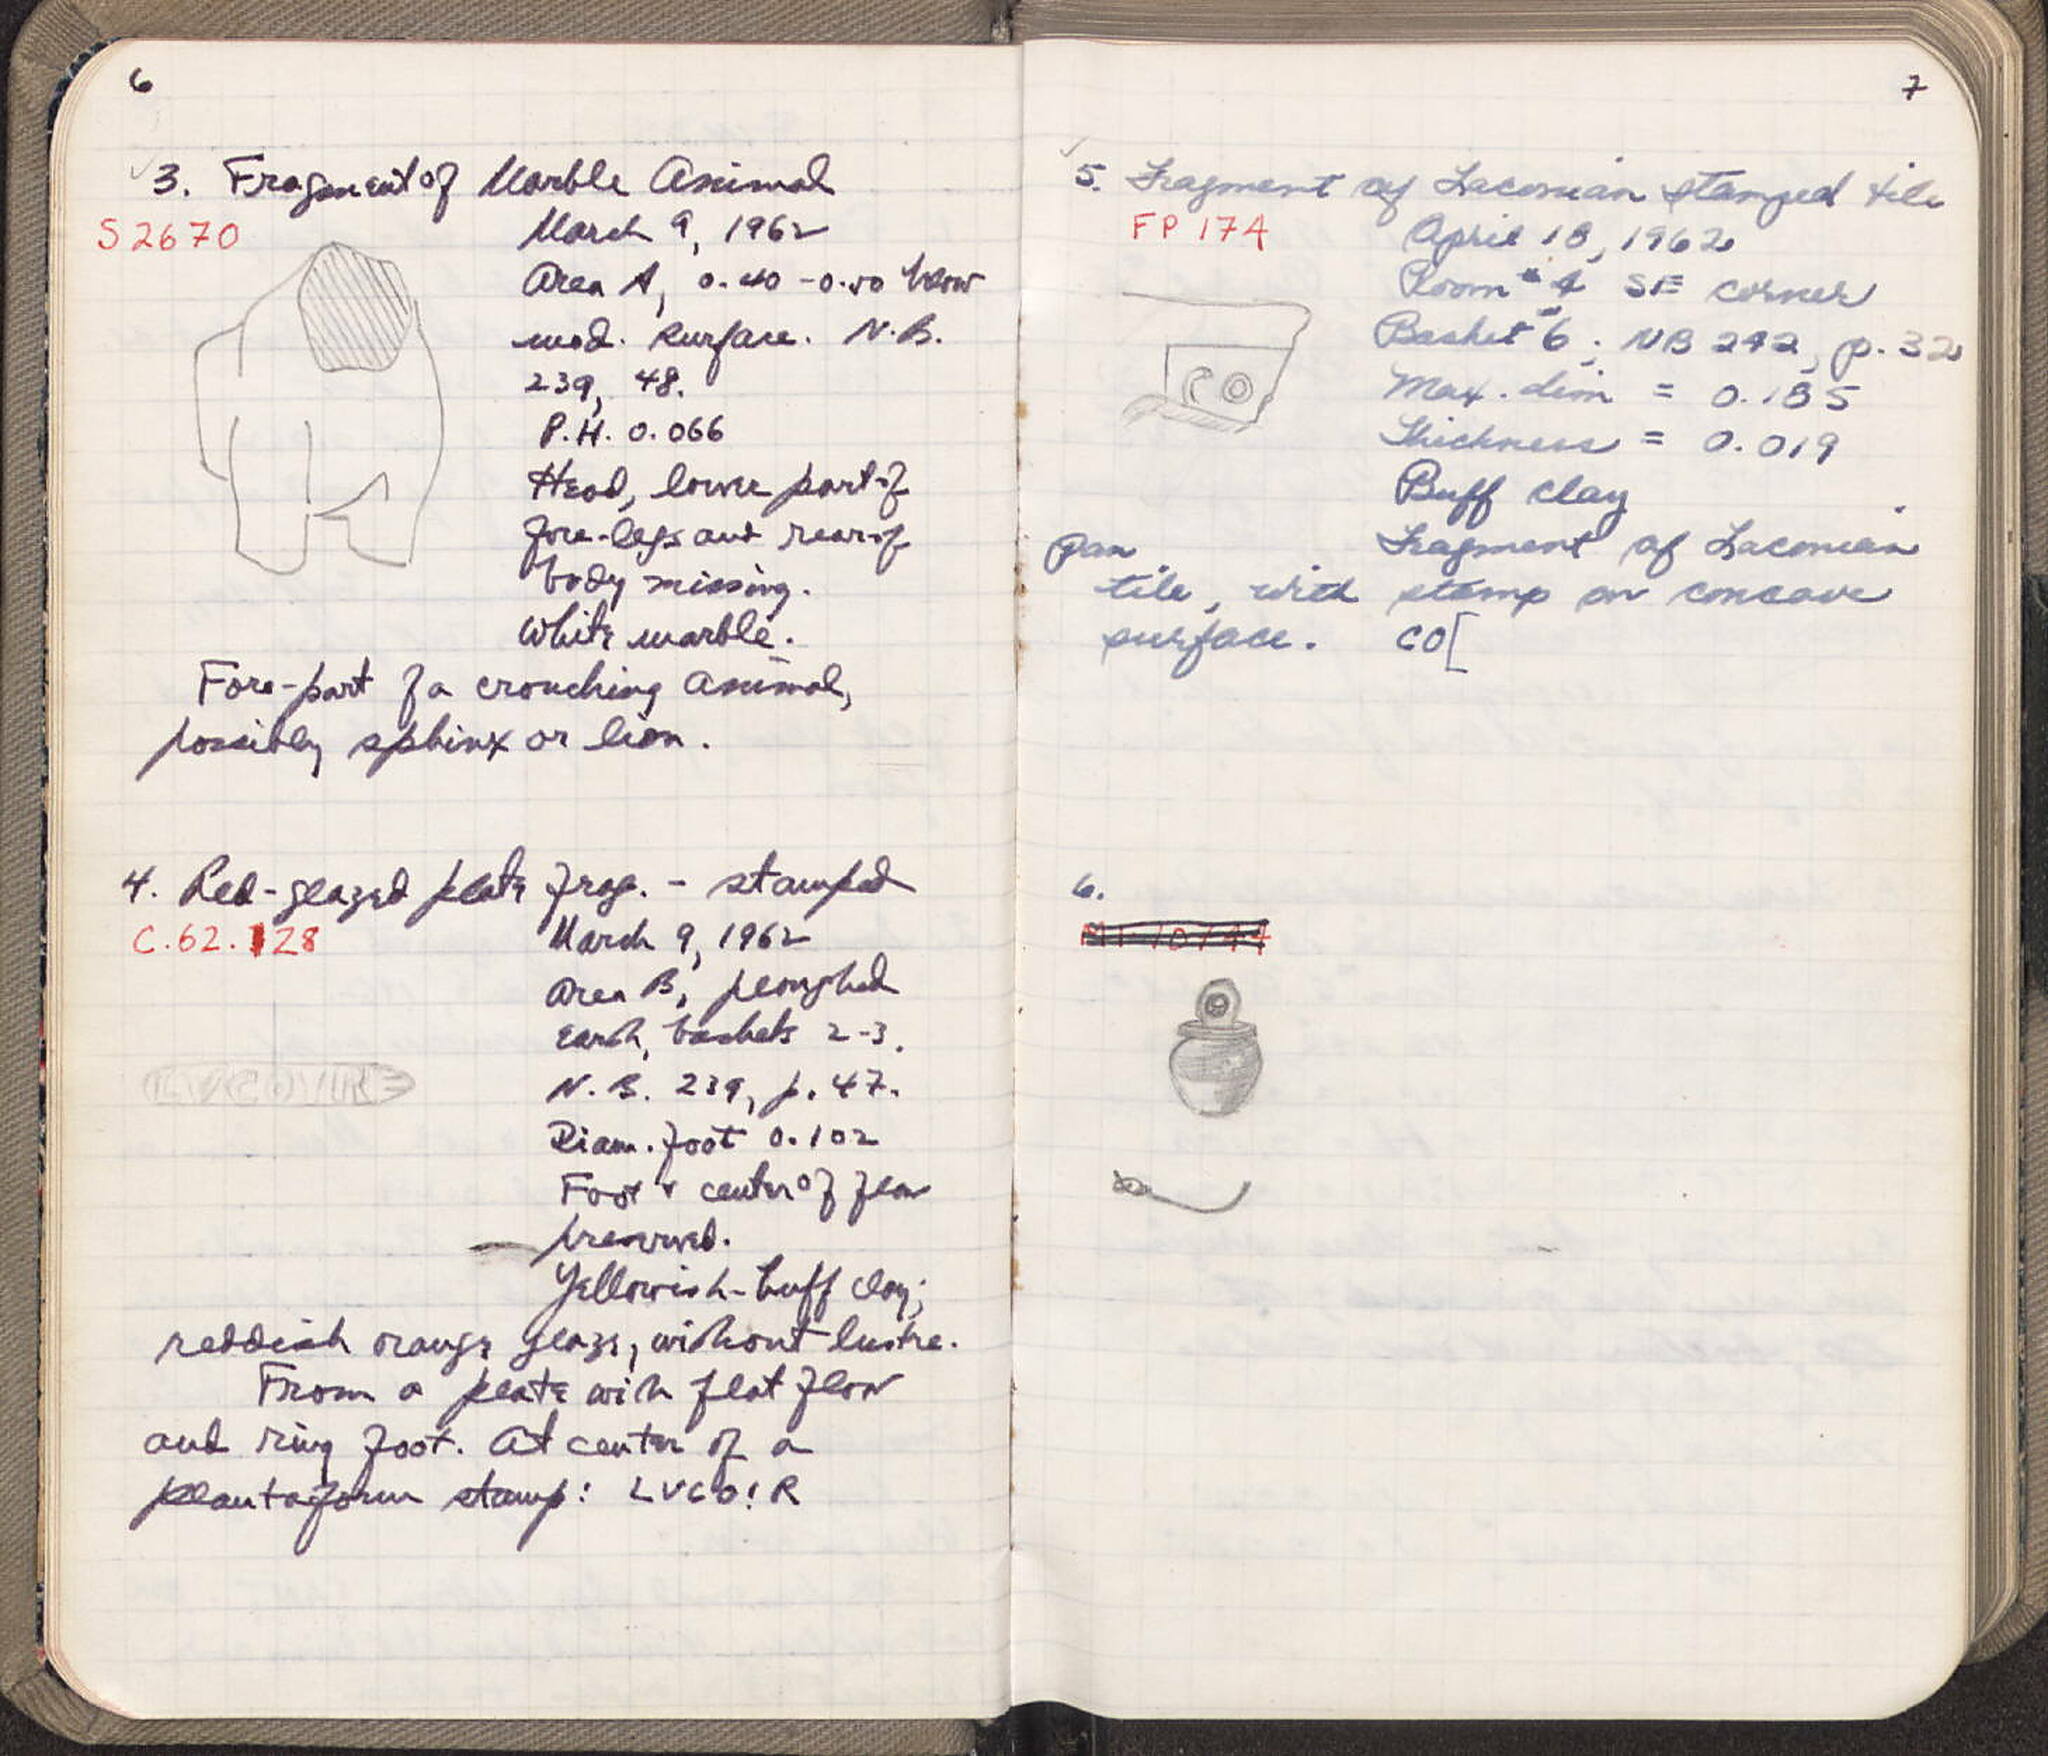 6
3. Fragment of Marble Animal
S 2670
March 9, 1962
Area A, 0.40 - 0.50 below
mod. surface. N.B.
239, 48.
P.H. 0.066
Head, lower part of
fore-legs and rear of
body missing.
White marble.
Fore-part of a crouching animal,
possibly sphinx or lion.
4. Red-glazed plate frag. - stamped
C.62.128
March 9, 1962
Area B, ploughed
earth, baskets 2-3.
N.B. 239, p. 47.
LVCOIRE
Diam. foot 0.102
Foot + center of floor
preserved.
Yellowish-buff clay;
reddish orange glaze, without lustre.
From a plate with flat floor
and ring foot. At center of a
plantaform stamp: LVCO!R
7
5. Fragment of Laconian stamped tile
FP 174
April 18, 1962
Room #4 SE corner
Basket #6; NB 242, p. 32
CO
Max. dim = 0.185
Thickness = 0.019
Buff clay
Fragment of Laconian
pan
tile, with stamp on concave
surface. CO[
6.